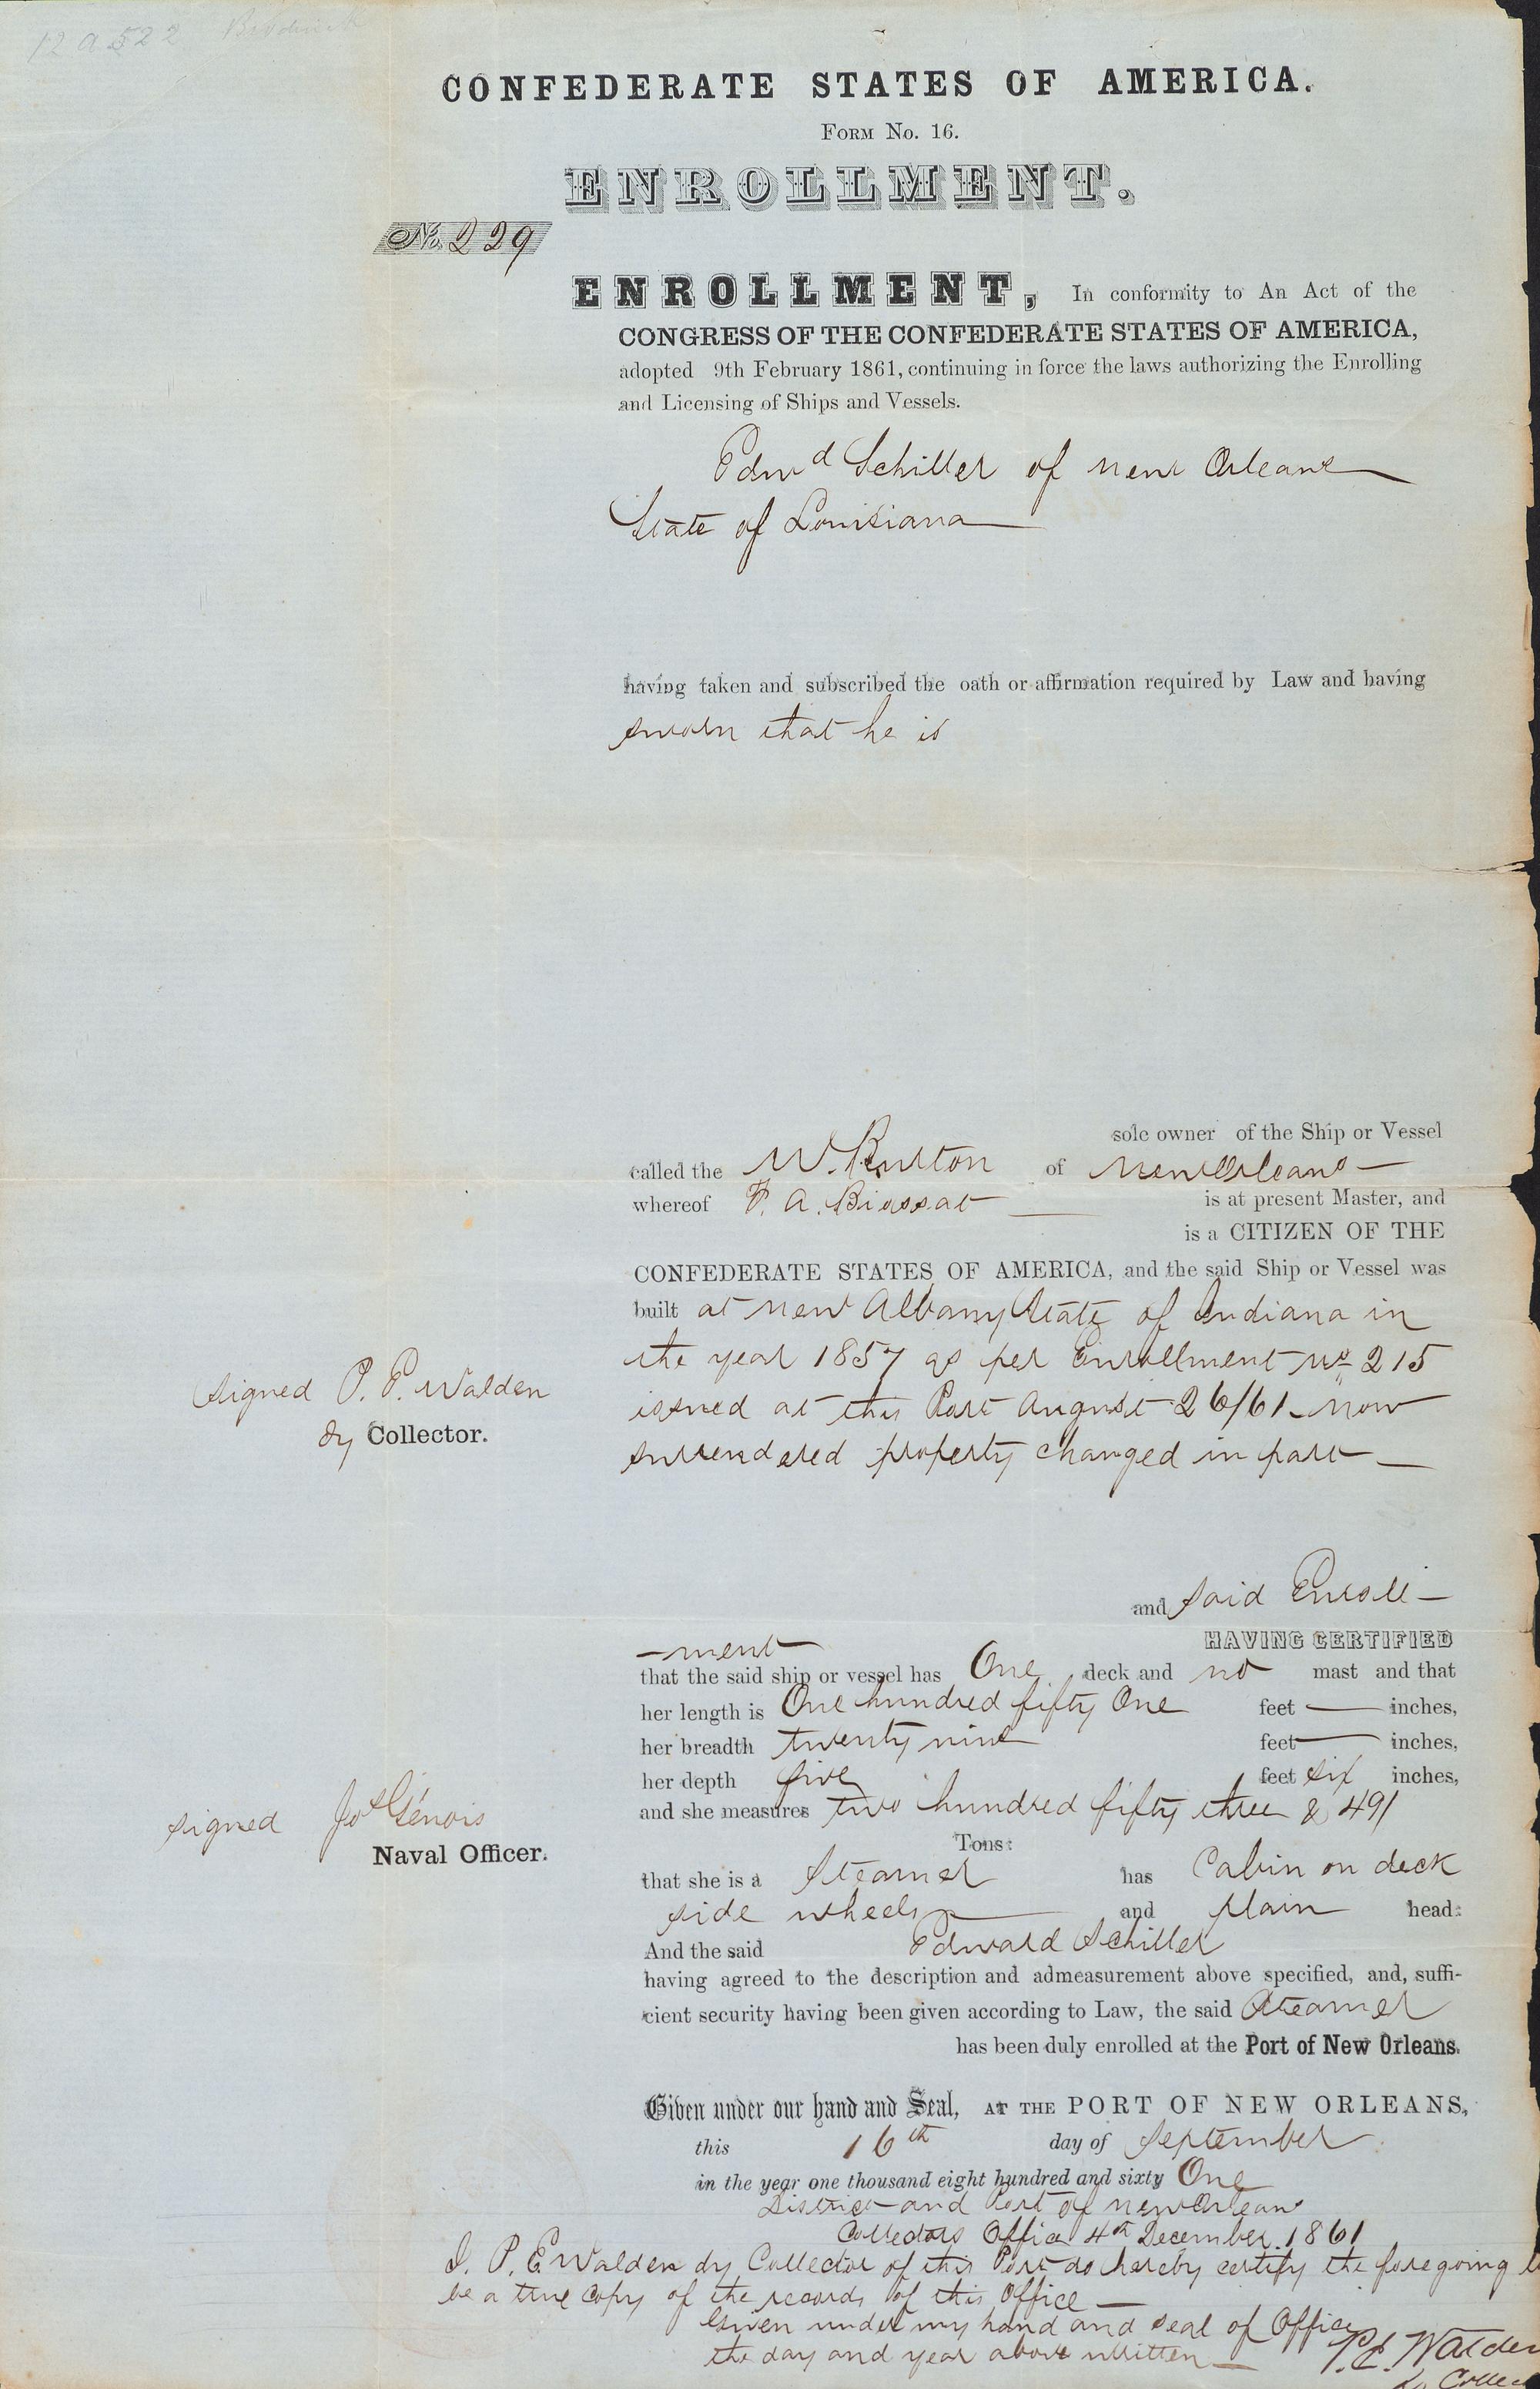 12 a 522
CONFEDERATE STATES OF AMERICA.
FORM No. 16.
ENROLLMENT.
No. 229
ENROLLMENT, In conformity to An Act of the
CONGRESS OF THE CONFEDERATE STATES OF AMERICA,
adopted 9th February 1861, continuing in force the laws authorizing the Enrolling
and Licensing of Ships and Vessels.
Edwd Schiller of New Orleans
State of Louisiana
having taken and subscribed the oath or affirmation required by Law and having
sworn that he is
sole owner of the Ship or Vessel
called the W. Burton of New Orleans
whereof F. A. Biossat is at present Master, and
is a CITIZEN OF THE
CONFEDERATE STATES OF AMERICA, and the said Ship or Vessel was
built at New Albany State of Indiana in
the year 1857 as per Enrollment No 215
issued at this Port August 26/61 - now
surrendered property changed in part
signed P. E. Walden
dy Collector.
and said Enroll-
-ment HAVING CERTIFIED
that the said ship or vessel has One deck and no mast and that
her length is One hundred fifty One feet — inches,
her breadth twenty nine feet — inches,
her depth five feet six inches,
and she measures two hundred fifty three & 49/
Tons:
signed Jos Génois
Naval Officer.
that she is a Steamer has Cabin on deck
side wheels and plain head:
And the said Edward Schiller
having agreed to the description and admeasurement above specified, and, suffi-
cient security having been given according to Law, the said Steamer
has been duly enrolled at the Port of New Orleans.
Given under our hand and Seal, AT THE PORT OF NEW ORLEANS,
this 16th day of September
in the year one thousand eight hundred and sixty One
District and Port of New Orleans
Collectors Office 4th December 1861
I. P. E. Walden dy Collector of this Port do hereby certify the foregoing to
be a true copy of the records of this Office —
Given under my hand and seal of Office
the day and year above written —
P. E. Walden